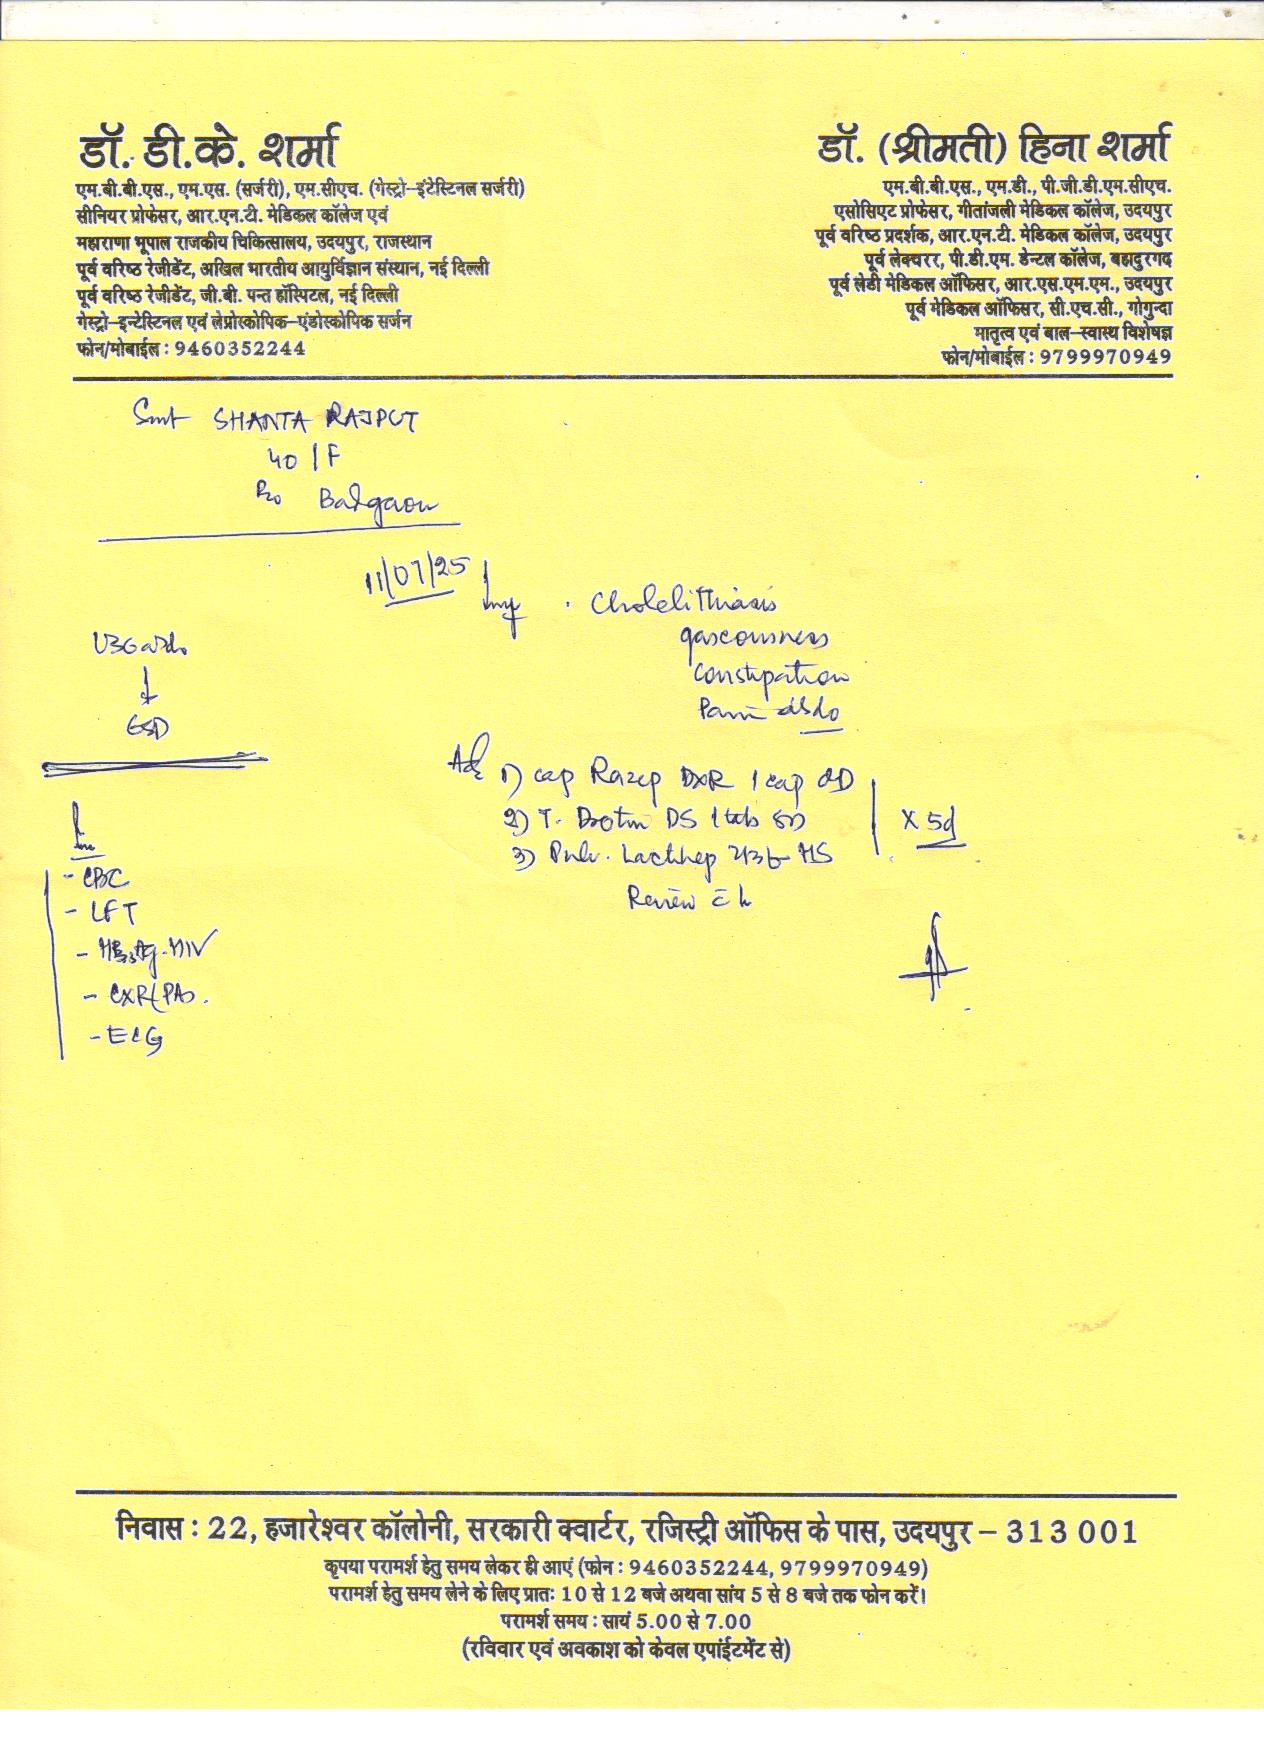 डॉ. डी.के. शर्मा
एम.बी.बी.एस., एम.एस. (सर्जरी), एम.सीएच. (गेस्ट्रो-इंटेस्टिनल सर्जरी)
सीनियर प्रोफेसर, आर.एन.टी. मेडिकल कॉलेज एवं
महाराणा भूपाल राजकीय चिकित्सालय, उदयपुर, राजस्थान
पूर्व वरिष्ठ रेजीडेंट, अखिल भारतीय आयुर्विज्ञान संस्थान, नई दिल्ली
पूर्व वरिष्ठ रेजीडेंट, जी.बी. पन्त हॉस्पिटल, नई दिल्ली
गेस्ट्रो-इन्टेस्टिनल एवं लेप्रोस्कोपिक-एंडोस्कोपिक सर्जन
फोन/मोबाईल : 9460352244
डॉ. (श्रीमती) हिना शर्मा
एम.बी.बी.एस., एम.डी., पी.जी.डी.एम.सीएच.
एसोसिएट प्रोफेसर, गीतांजली मेडिकल कॉलेज, उदयपुर
पूर्व वरिष्ठ प्रदर्शक, आर.एन.टी. मेडिकल कॉलेज, उदयपुर
पूर्व लेक्चरर, पी.डी.एम. डेन्टल कॉलेज, बहादुरगढ़
पूर्व लेडी मेडिकल ऑफिसर, आर.एस.एम.एम., उदयपुर
पूर्व मेडिकल ऑफिसर, सी.एच.सी., गोगुन्दा
मातृत्व एवं बाल-स्वास्थ विशेषज्ञ
फोन/मोबाईल : 9799970949
Smt SHANTA RAJPUT
40 / F
R/o Badgaon
11/07/25
Imp . Cholelithiasis
gaseousness
constipation
Pain
USG
GSD
Adv 1) cap Razep DXR 1 cap OD
2) T. Drotin DS 1 tab
3) Pulv. Lactihep HS
X 5d
Review
- CBC
- LFT
- HBsAg. HIV
- CXR (PA).
- ECG
निवास : 22, हजारेश्वर कॉलोनी, सरकारी क्वार्टर, रजिस्ट्री ऑफिस के पास, उदयपुर – 313 001
कृपया परामर्श हेतु समय लेकर ही आएं (फोन : 9460352244, 9799970949)
परामर्श हेतु समय लेने के लिए प्रातः 10 से 12 बजे अथवा सांय 5 से 8 बजे तक फोन करें।
परामर्श समय : सायं 5.00 से 7.00
(रविवार एवं अवकाश को केवल एपांईटमेंट से)